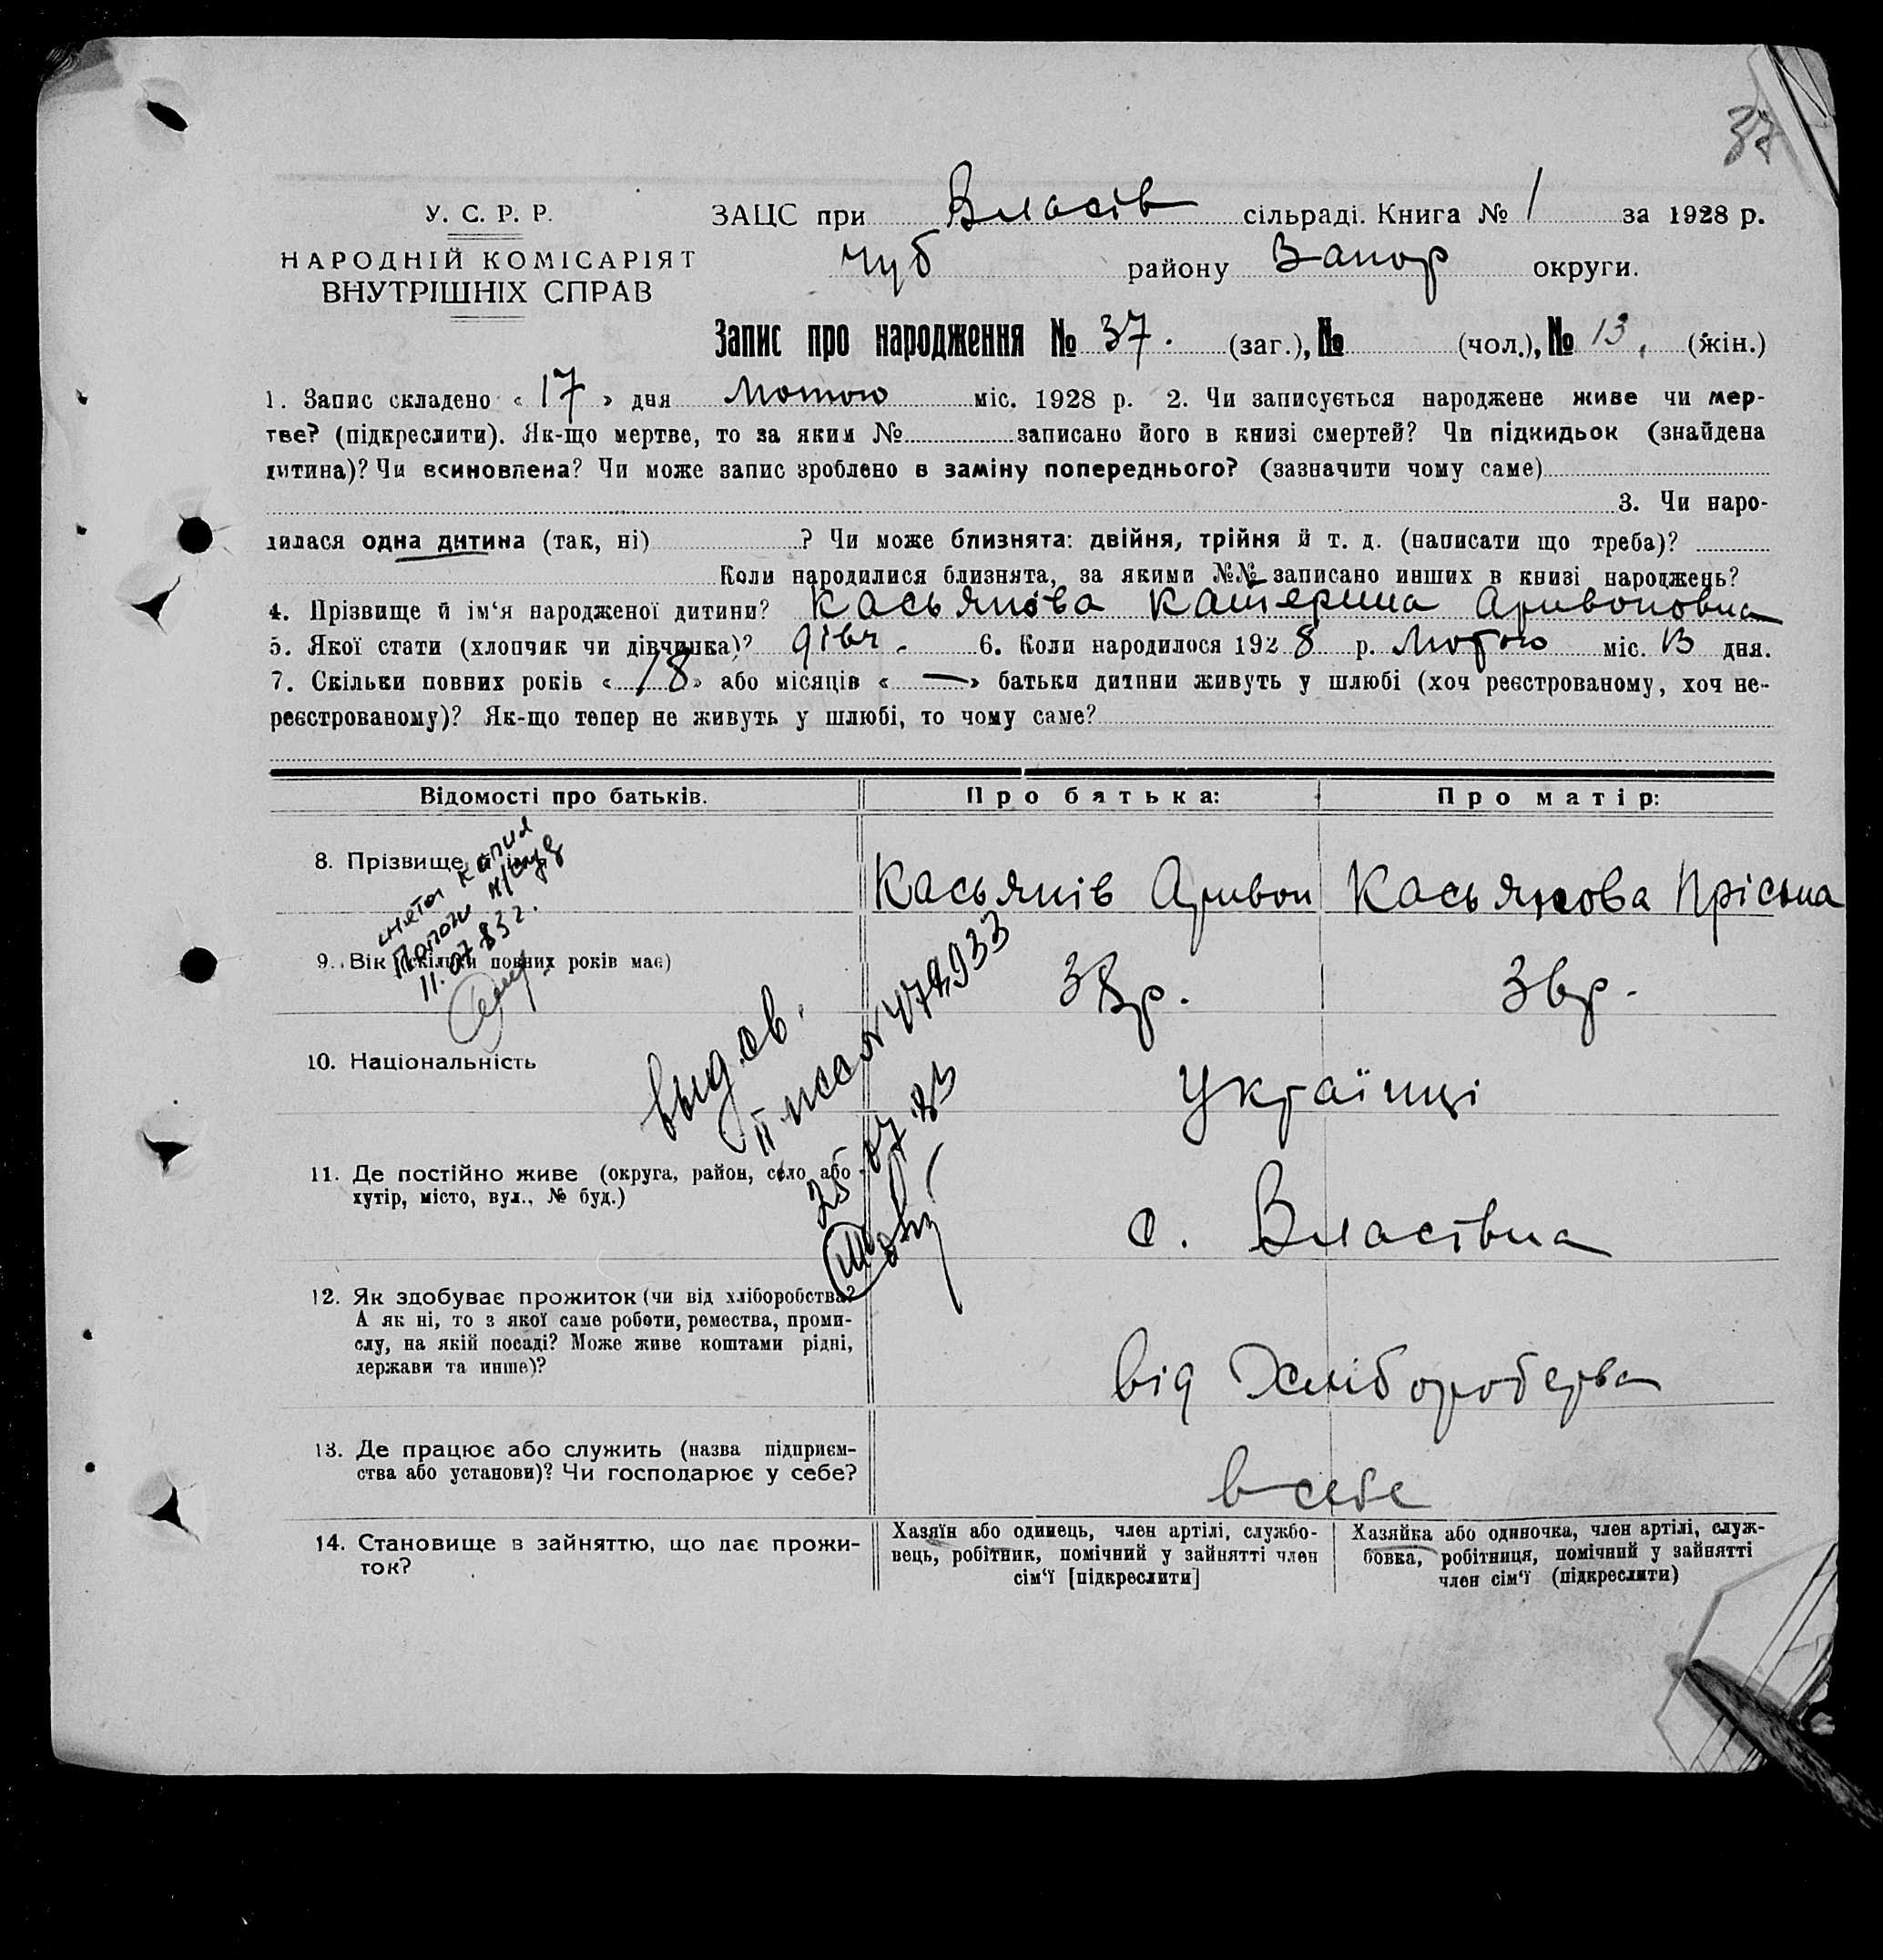 37
У. С. Р. Р.
НАРОДНІЙ КОМІСАРІЯТ
ВНУТРІШНІХ СПРАВ
ЗАЦС при Власів сільраді. Книга № 1 за 1928 р.
Чуб району Запор округи.
Запис про народження № 37. (заг.), № (чол.), № 13. (жін.)
1. Запис складено «17» дня Лютого міс. 1928 р. 2. Чи записується народжене живе чи мер-
тве? (підкреслити). Як-що мертве, то за яким № записано його в книзі смертей? Чи підкидьок (знайдена
дитина)? Чи всиновлена? Чи може запис зроблено в заміну попереднього? (зазначити чому саме)
3. Чи наро-
дилася одна дитина (так, ні) ? Чи може близнята: двійня, трійня й т. д. (написати що треба)?
Коли народилися близнята, за якими №№ записано инших в книзі народжень?
4. Прізвище й ім‘я народженої дитини? Касьянова Катерина Аривоновна
5. Якої стати (хлопчик чи дівчинка)? дівч. 6. Коли народилося 1928 р. Лютого міс. 13 дня.
7. Скільки повних років «18» або місяців «—» батьки дитини живуть у шлюбі (хоч реєстрованому, хоч не-
реєстрованому)? Як-що тепер не живуть у шлюбі, то чому саме?
Відомості про батьків. Про батька: Про матір:
8. Прізвище й ім‘я Касьянів Аривон Касьянова Прісьна
снята копия
11.07.83 г.
9. Вік (скільки повних років має) 38р. 36р.
10. Національність Українці
выд. св.
25.07.83
11. Де постійно живе (округа, район, село або
хутір, місто, вул., № буд.)
с. Власівка
12. Як здобуває прожиток (чи від хліборобства?
А як ні, то з якої саме роботи, ремества, проми-
слу, на якій посаді? Може живе коштами рідні,
держави та инше)?
від Хліборобства
13. Де працює або служить (назва підприєм-
ства або установи)? Чи господарює у себе?
в себе
14. Становище в зайняттю, що дає прожи-
ток?
Хазяїн або одинець, член артілі, службо-
вець, робітник, помічний у зайнятті член
сім‘ї [підкреслити]
Хазяйка або одиночка, член артілі, служ-
бовка, робітниця, помічний у зайнятті
член сім‘ї (підкреслити)